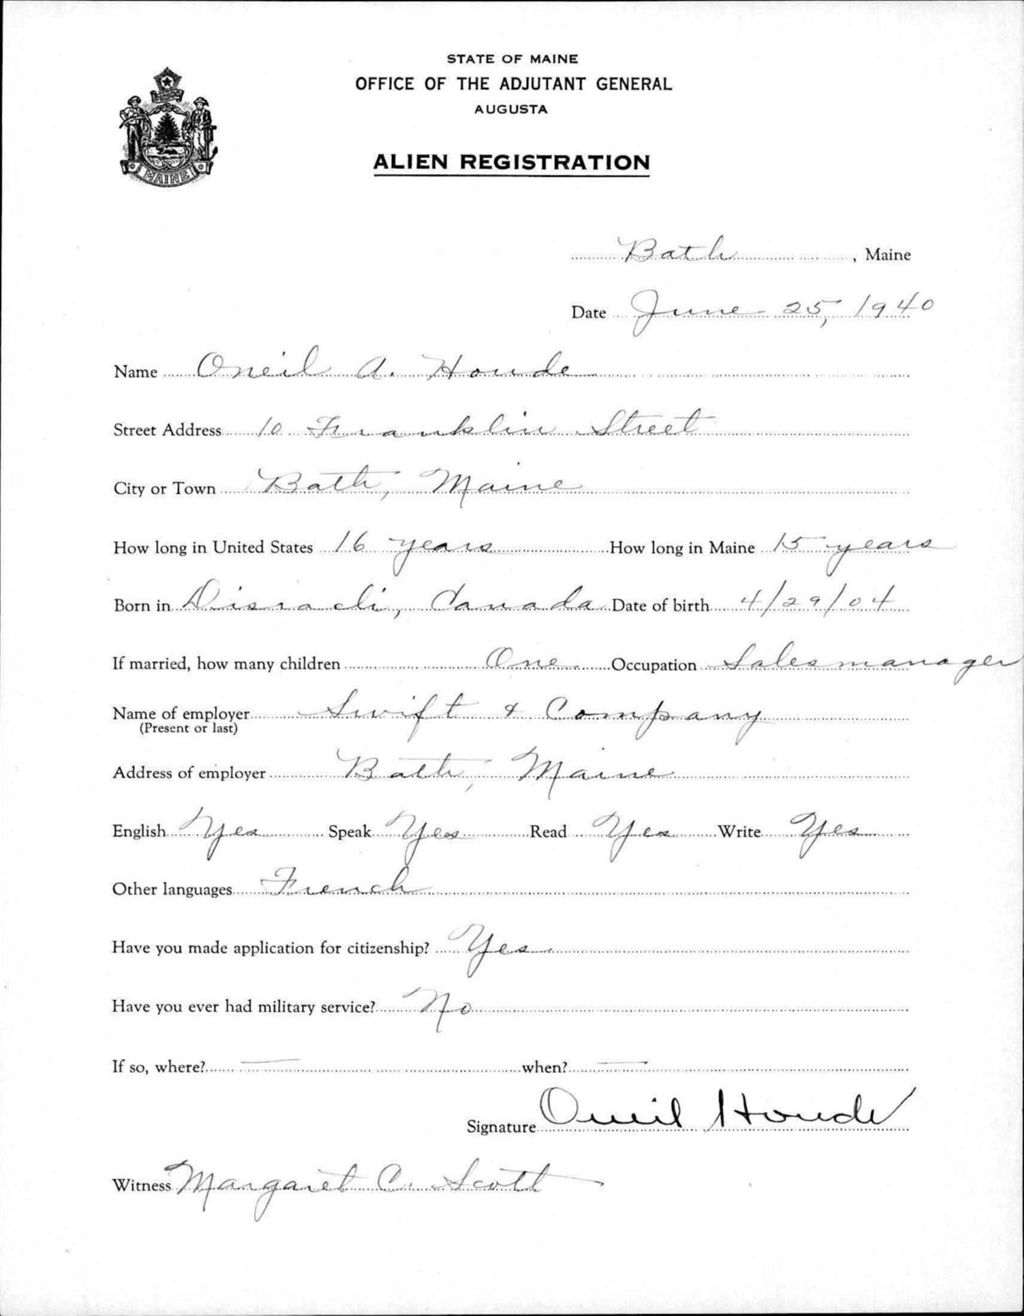 STATE OF MAINE
OFFICE OF THE ADJUTANT GENERAL
AUGUSTA
ALIEN REGISTRATION
MAINE
Bath, Maine
Date June 25, 1940
Name Oneil A. Houde
Street Address 10 Franklin Street
City or Town Bath, Maine
How long in United States 16 years How long in Maine 15 years
Born in Disraeli, Canada Date of birth 4/29/04
If married, how many children One Occupation Salesmanager
Name of employer Swift & Company
(Present or last)
Address of employer Bath, Maine
English Yes Speak Yes Read Yes Write Yes
Other languages French
Have you made application for citizenship? Yes
Have you ever had military service? No
If so, where? — when? —
Signature Oneil Houde
Witness Margaret C. Scott